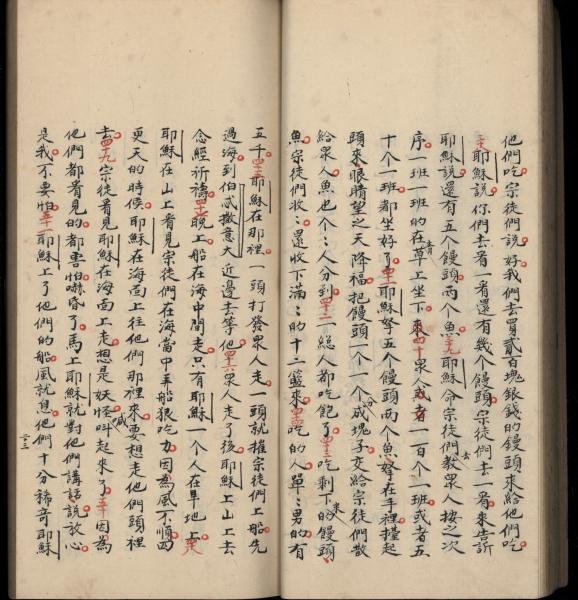 他們吃宗徒們說好我們去買貳百塊銀錢的饅頭來給他們吃
三八耶穌說你們去看一看還有幾個饅頭宗徒們去一看來告訴
耶穌說還有五个饅頭兩个魚三九耶穌命宗徒們教眾人按之次
序一班一班的在青草上坐下來四十眾人或者一百个一班或者五
十个一班都坐好了四一耶穌拏五个饅頭兩个魚拏在手裡擡起
頭來眼睛望之天降福把饅頭一个一个成塊子交給宗徒們散
給眾人魚也个〻人分到四二総人都吃飽了四三吃剩下來的饅頭
魚宗徒們收〻還收下滿〻的十二籃來四四吃的人單〻男的有
五千四五耶穌在那裡一頭打發眾人走一頭就摧宗徒們上船先
過海到伯忒撒意大近邊去等他四六眾人走了後耶穌上山上去
念經祈禱四七晚上船在海中間走只有耶穌一个人在旱地上四八
耶穌在山上看見宗徒們在海當中弄船狠吃力因為風不順四
更天的時候耶穌在海面上徃他們那裡來要想走他們頭裡
去四九宗徒看見耶穌在海面上走想是妖怪呌喊起來了五十因為
他們都看見的都害怕嚇昏了馬上耶穌就對他們講話說放心
是我不要怕五一耶穌上了他們的船風就息他們十分稀奇耶穌
二三